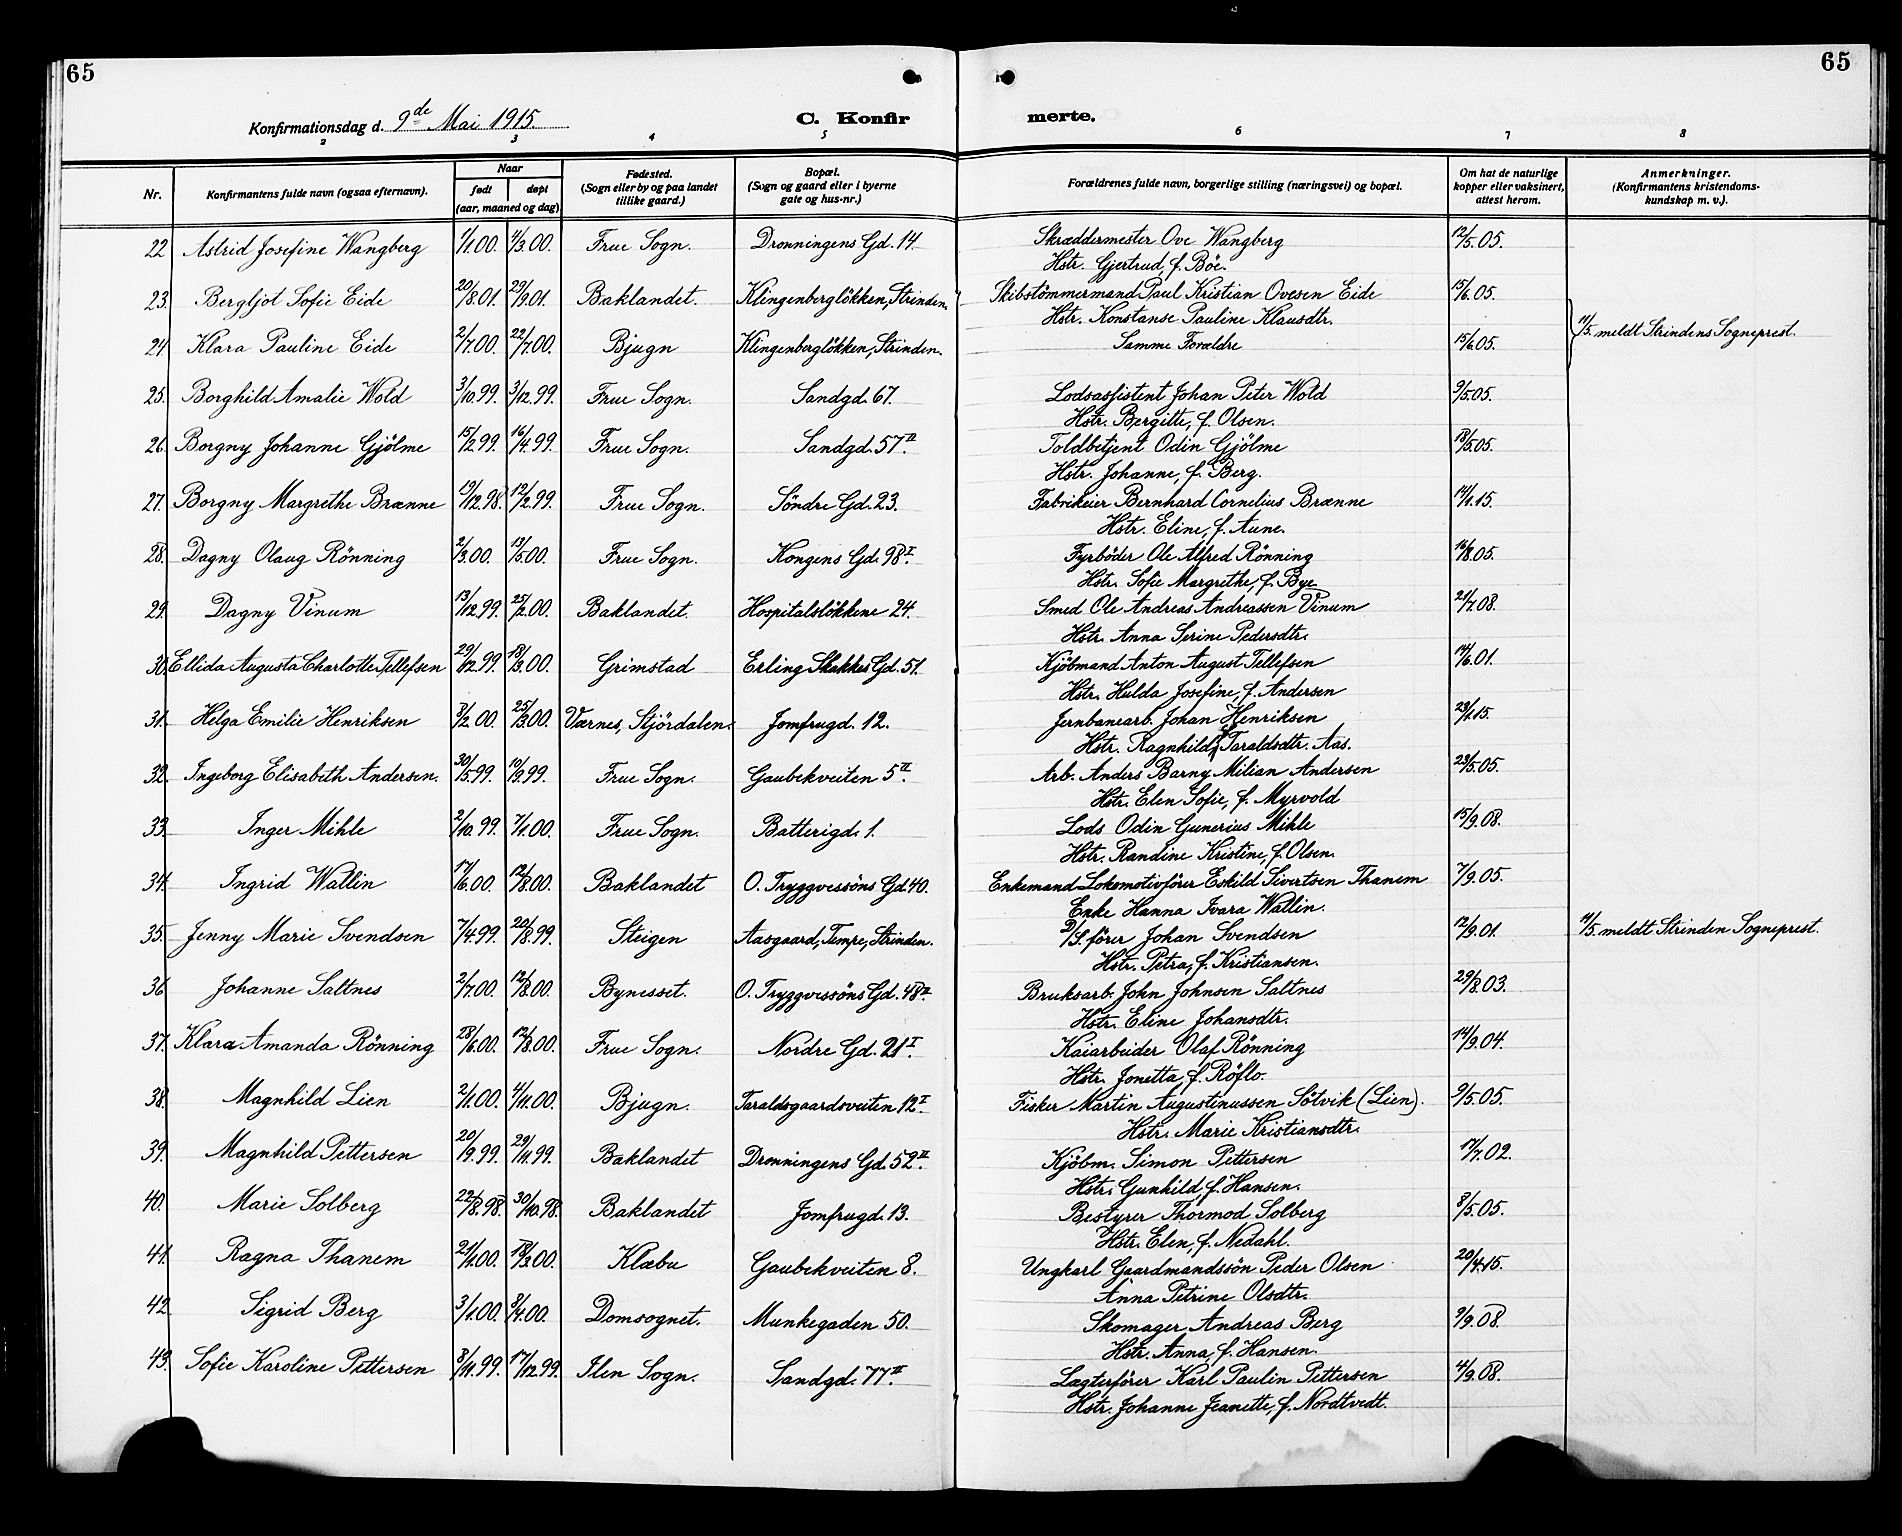 65
65
Konfirmationsdag d. 9de Mai 1915
C. Konfir
merte.
2 3 4 5 6 7 8
Nr. Konfirmantens fulde navn (ogsaa efternavn). Naar født døpt (aar, maaned og dag) Fødested. (Sogn eller by og paa landet tillike gaard.) Bopæl. (Sogn og gaard eller i byerne gate og hus-nr.) Forældrenes fulde navn, borgerlige stilling (næringsvei) og bopæl. Om hat de naturlige kopper eller vaksinert, attest herom. Anmerkninger. (Konfirmantens kristendomskundskap m. v.).
22 Astrid Josefine Wangberg 1/1.00. 4/3.00. Frue Sogn. Dronningens Gd. 14. Skræddermester Ove Wangberg 12/5.05.
Hstr. Gjertrud, f. Böe.
23. Bergljot Sofie Eide 20/8.01. 29/9.01. Baklandet. Klingenberglökken, Strinden. Skibstömmermand Paul Kristian Ovesen Eide 15/6.05.
Hstr. Konstanse Pauline Klausdtr.
11/5. meldt Strindens Sogneprest.
24. Klara Pauline Eide 2/7.00. 22/7.00. Bjugn Klingenberglökken, Strinden. Samme Forældre 15/6.05.
25. Borghild Amalie Wold 3/10.99. 3/12.99. Frue Sogn. Sandgd. 67. Lodsassistent Johan Peter Wold 9/5.05.
Hstr. Bergitte, f. Olsen.
26. Borgny Johanne Gjölme 15/2.99. 16/4.99. Frue Sogn. Sandgd. 57 II. Toldbetjent Odin Gjölme 18/5.05.
Hstr. Johanne, f. Berg.
27. Borgny Margrethe Brænne 19/12.98. 12/2.99. Frue Sogn. Söndre Gd. 23. Fabrikeier Bernhard Cornelius Brænne 14/1.15.
Hstr. Eline, f. Aune.
28. Dagny Olaug Rönning 2/3.00. 13/5.00. Frue Sogn. Kongens Gd. 98 I. Fyrböder Ole Alfred Rönning 16/8.05.
Hstr. Sofie Margrethe, f. Bye
29. Dagny Vinum 13/12.99. 25/2.00. Baklandet. Hospitalslökkene 24. Smed Ole Andreas Andreassen Vinum 21/7.08.
Hstr. Anna Serine Pedersdtr.
30. Ellida Augusta Charlotte Tellefsen 29/12.99. 18/3.00. Grimstad Erling Skakkes Gd. 51. Kjöbmand Anton August Tellefsen 14/6.01.
Hstr. Hulda Josefine, f. Andersen
31. Helga Emilie Henriksen 8/2.00. 25/3.00. Værnes, Stjördalen. Jomfrugd. 12. Jernbanearb. Johan Henriksen 23/1.15.
Hstr. Ragnhild, f. Taraldsdtr. Aas.
32. Ingeborg Elisabeth Andersen. 30/5.99. 10/9.99. Frue Sogn. Gaubekveiten 5 II. Arb. Anders Barny Milian Andersen 23/5.05.
Hstr. Elen Sofie, f. Myrvold
33. Inger Mihle 2/10.99. 7/1.00. Frue Sogn. Batterigd. 1. Lods Odin Gunerius Mihle 15/9.08.
Hstr. Randine Kristine, f. Olsen.
34. Ingrid Wallin 17/6.00. 12/8.00. Baklandet O. Tryggvessöns Gd. 40. Enkemand Lokomotivförer Eskild Sivertsen Thanem 7/9.05.
Enke Hanna Ivara Wallin.
35. Jenny Marie Svendsen 7/4.99. 20/8.99. Steigen Aasgaard, Tempe, Strinden. D/S. förer Johan Svendsen 12/9.01. 11/5. meldt Strinden Sogneprest.
Hstr. Petra, f. Kristiansen.
36 Johanne Saltnes 2/7.00. 12/8.00. Bynesset. O. Tryggvessöns Gd. 48 II. Bruksarb. John Johnsen Saltnes 29/8.03.
Hstr. Eline Johansdtr.
37. Klara Amanda Rönning 28/6.00. 12/8.00. Frue Sogn. Nordre Gd. 21 I. Kaiarbeider Olaf Rönning 14/9.04.
Hstr. Jonetta, f. Röflo.
38. Magnhild Lien 2/1.00. 4/11.00. Bjugn. Taraldsgaardsveiten 12 I. Fisker Martin Augustinussen Sötvik (Lien). 9/5.05.
Hstr. Marie Kristiansdtr.
39. Magnhild Pettersen 20/9.99. 29/11.99. Baklandet Dronningens Gd. 52 II. Kjöbm. Simon Pettersen 17/7.02.
Hstr. Gunhild, f. Hansen.
40. Marie Solberg 22/8.98. 30/10.98. Baklandet Jomfrugd. 13. Bestyrer Thormod Solberg 8/5.05.
Hstr. Elen, f. Nedahl.
41. Ragna Thanem 2/1.00. 18/3.00. Klæbu Gaubekveiten 8. Ungkarl Gaardmandssön Peder Olsen 20/4.15.
Anna Petrine Olsdtr.
42. Sigrid Berg 3/1.00. 8/4.00. Domsognet. Munkegaden 50. Skomager Andreas Berg 9/9.08.
Hstr. Anna, f. Hansen.
43. Sofie Karoline Pettersen 8/11.99. 17/12.99. Ilen Sogn. Sandgd. 77 II. Lægterförer Karl Paulin Pettersen 4/9.08.
Hstr. Johanne Jeanette, f. Nordtvedt.